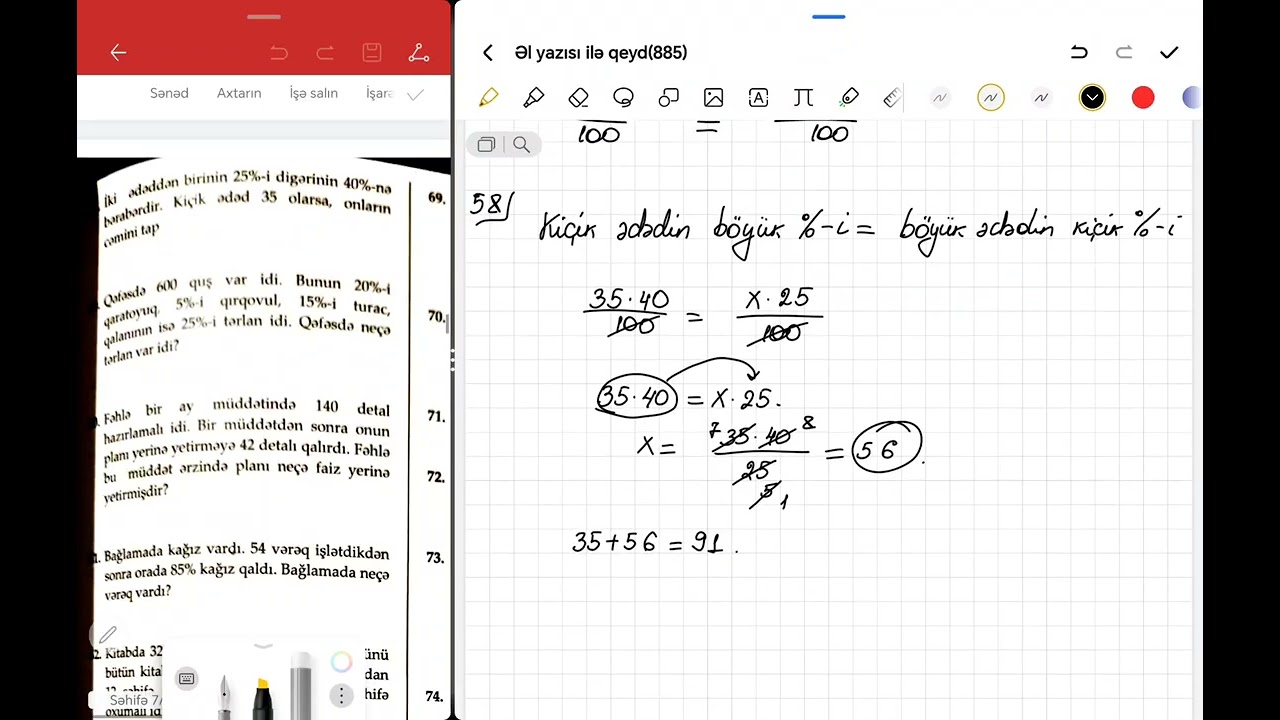 Əl yazısı ilə qeyd(885)
Sənəd Axtarın İşə salın İşarə
İki ədəddən birinin 25%-i digərinin 40%-nə
bərabərdir. Kiçik ədəd 35 olarsa, onların
cəmini tap
Qəfəsdə 600 quş var idi. Bunun 20%-i
qaratoyuq, 5%-i qırqovul, 15%-i turac,
qalanının isə 25%-i tərlan idi. Qəfəsdə neçə
tərlan var idi?
Fəhlə bir ay müddətində 140 detal
hazırlamalı idi. Bir müddətdən sonra onun
planı yerinə yetirməyə 42 detalı qalırdı. Fəhlə
bu müddət ərzində planı neçə faiz yerinə
yetirmişdir?
Bağlamada kağız vardı. 54 vərəq işlətdikdən
sonra orada 85% kağız qaldı. Bağlamada neçə
vərəq vardı?
2. Kitabda 32 ünü
bütün kita dan
hifə
oxumalı id
Səhifə 7/
69.
70.
71.
72.
73.
74.
100 = 100
58) Kiçik ədədin böyük %-i = böyük ədədin kiçik %-i
35·40 / 100 = x·25 / 100
35·40 = x·25.
x = 7 35·40 8 / 25 5 1 = 56.
35+56 = 91.